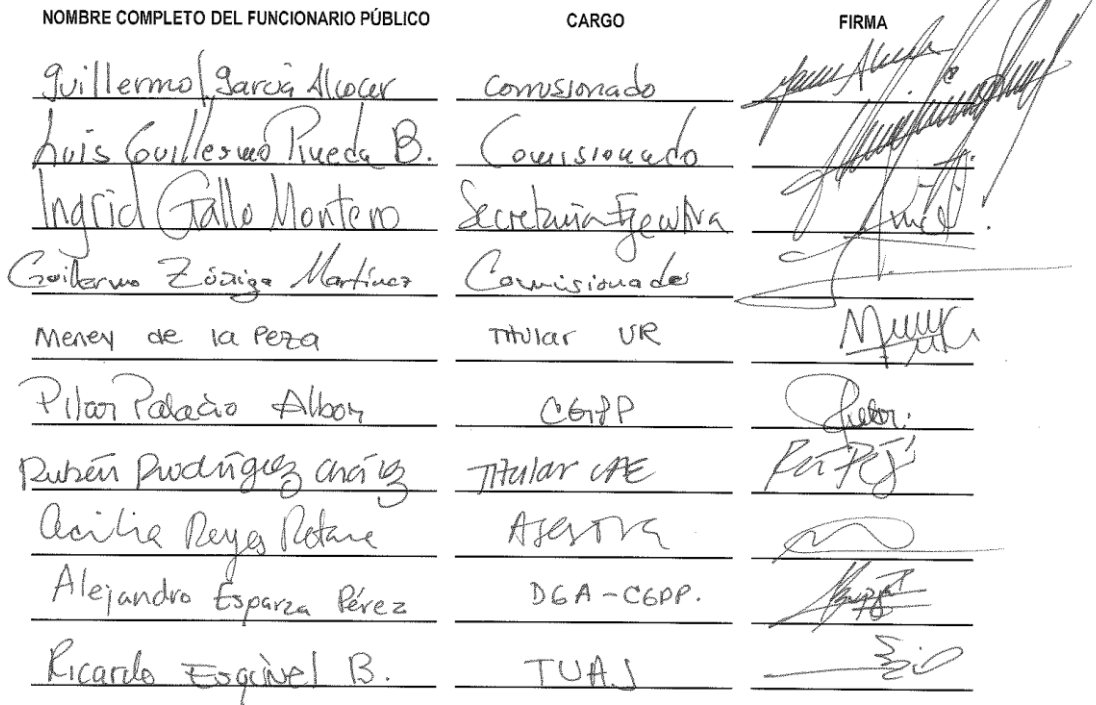 NOMBRE COMPLETO DEL FUNCIONARIO PÚBLICO CARGO FIRMA
Guillermo García Alcocer Comisionado
Luis Guillermo Pineda B. Comisionado
Ingrid Gallo Montero Secretaria Ejecutiva
Guillermo Zúñiga Martínez Comisionado
Meney de la Peza Titular UR
Pilar Palacio Albor CGPP
Rubén Rodríguez Titular UAE
Cecilia Reyes Retana Asesora
Alejandro Esparza Pérez DGA-CGPP.
Ricardo Esquivel B. TUAJ